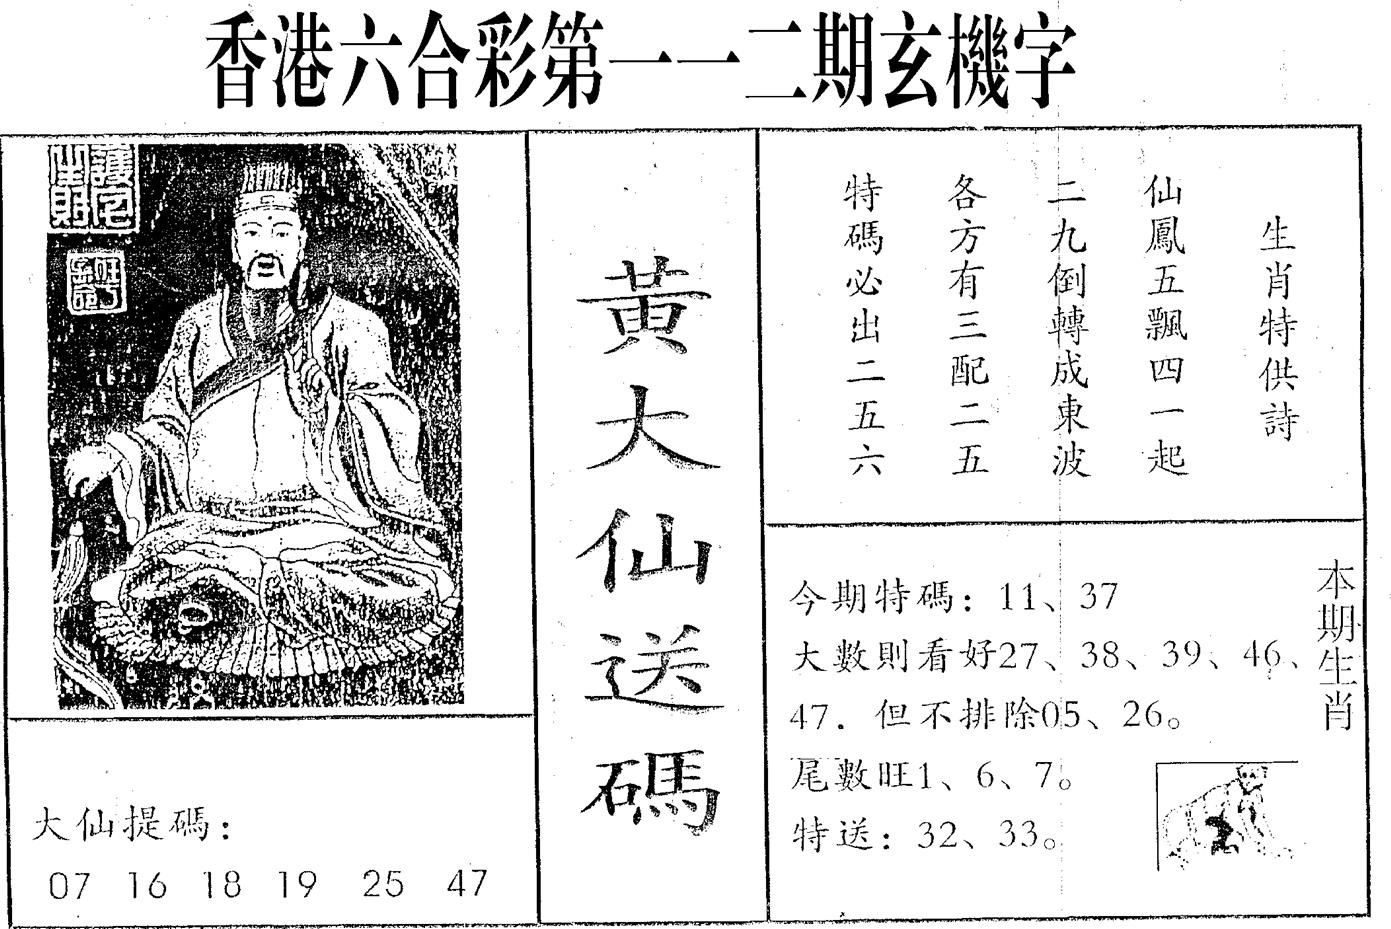 香港六合彩第一一二期玄機字
護宅
生財
黃大仙送碼
生肖特供詩
仙鳳五飄四一起
二九倒轉成東波
各方有三配二五
特碼必出二五六
本期生肖
今期特碼：11、37
大數則看好27、38、39、46、
47．但不排除05、26。
尾數旺1、6、7。
特送：32、33。
大仙提碼：
07 16 18 19 25 47